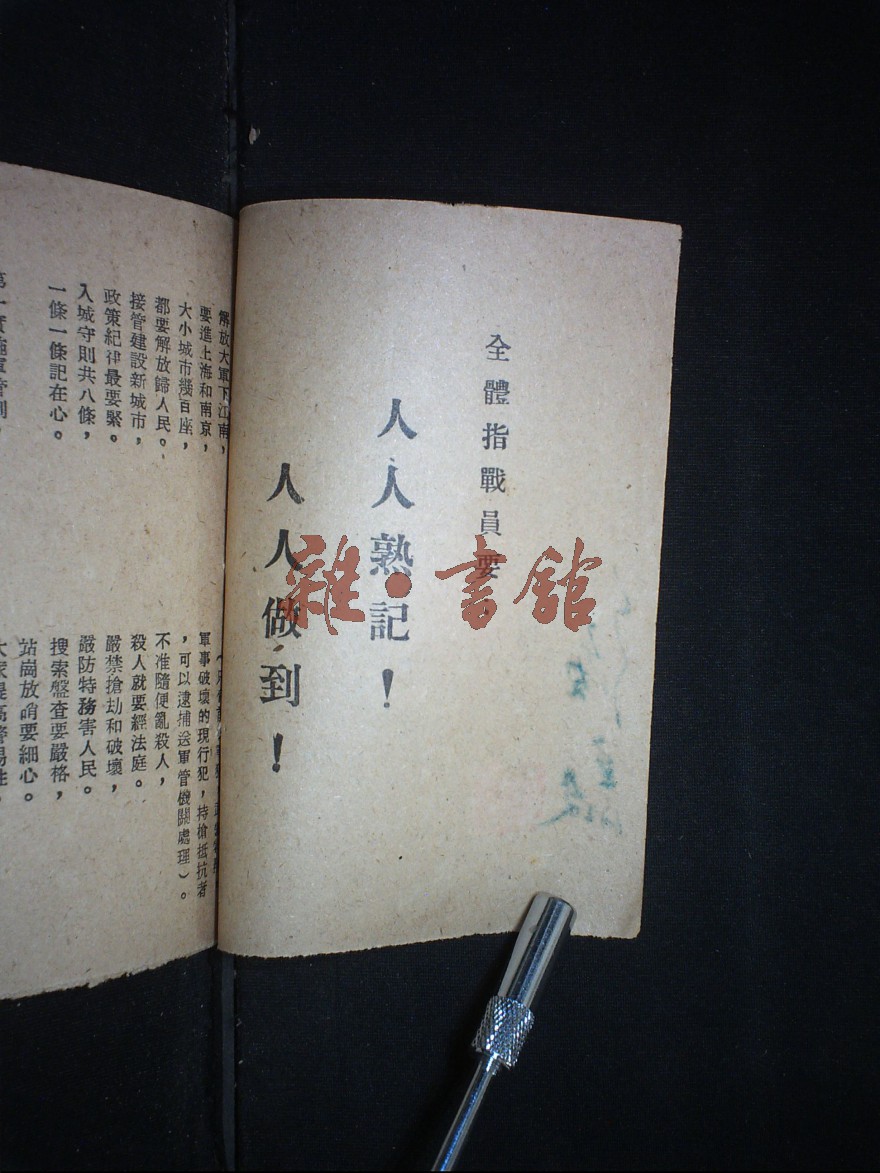 全體指戰員要，
人人熟記！
人人做到！
解放大軍下江南，
要進上海和南京，
大小城市幾百座，
都要解放歸人民。
接管建設新城市，
政策紀律最要緊。
入城守則共八條，
一條一條記在心。
軍事破壞的現行犯，持槍抵抗者
，可以逮捕送軍管機關處理）。
不准隨便亂殺人，
殺人就要經法庭。
嚴禁搶劫和破壞，
嚴防特務害人民。
搜索盤查要嚴格，
站崗放哨要細心。
大家提高警惕性，
雜·書館